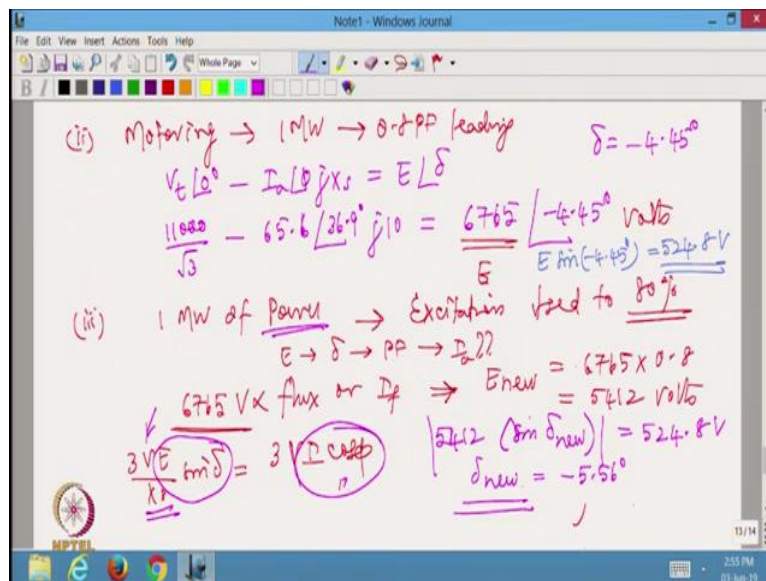 Note1 - Windows Journal
File Edit View Insert Actions Tools Help
Whole Page
B I
(ii) Motoring → 1 MW → 0.8 PF leading δ = -4.45°
Vt∠0° - Ia∠φ jXs = E∠δ
11000/√3 - 65.6∠36.9° j10 = 6765∠-4.45° volts
E
E sin(-4.45°) = 524.8V
(iii) 1 MW of Power → Excitation used to 80%
E → δ → PF → Ia??
6765 V ∝ flux or If ⇒ Enew = 6765 x 0.8
= 5412 volts
3VE/Xs sin δ = 3 V I cosφ
|5412 (sin δnew)| = 524.8V
δnew = -5.56°
NPTEL
13/14
2:55 PM
03-Jun-19